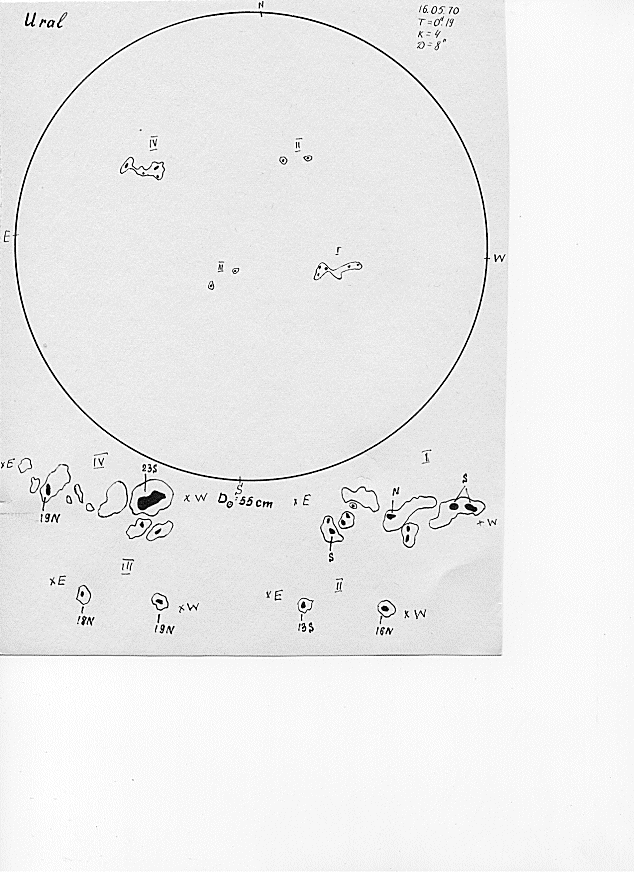 Ural
16.05.70
T=0ʰ.19
K=4
D=8"
N
IV
II
E
W
III
I
S
I
IV
23S
S
×E
×W
D☉=55cm
×E
N
19N
×W
S
III
II
×E
×E
×W
×W
18N
19N
13S
16N